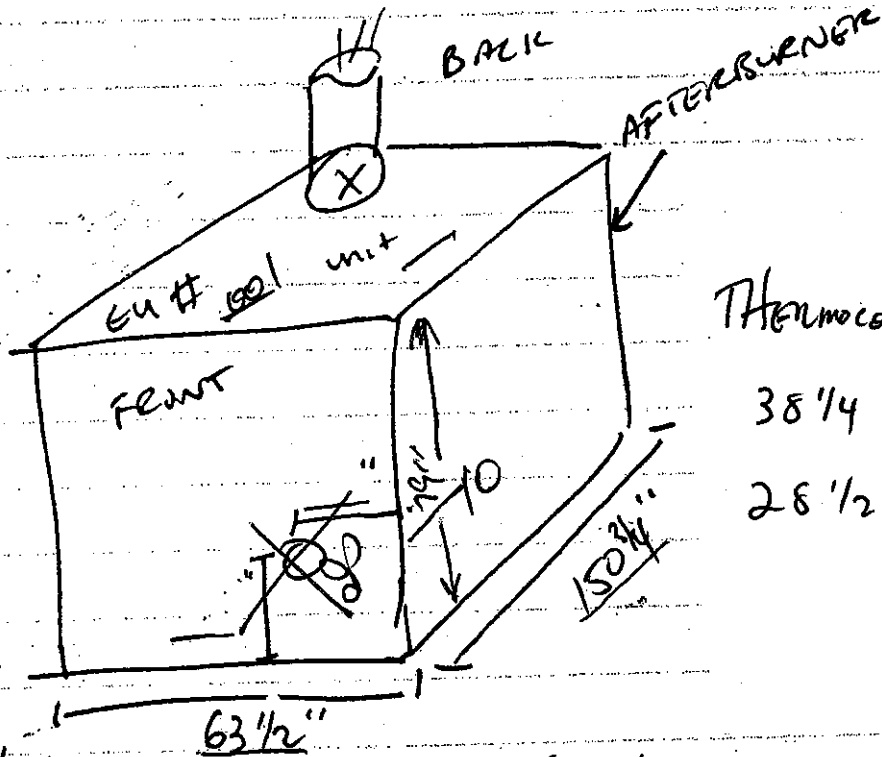 BACK
AFTERBURNER
X
EU # 001 unit
FRONT
THERMOCO
38 1/4
28 1/2
"
79"
10
"
150 3/4"
63 1/2"